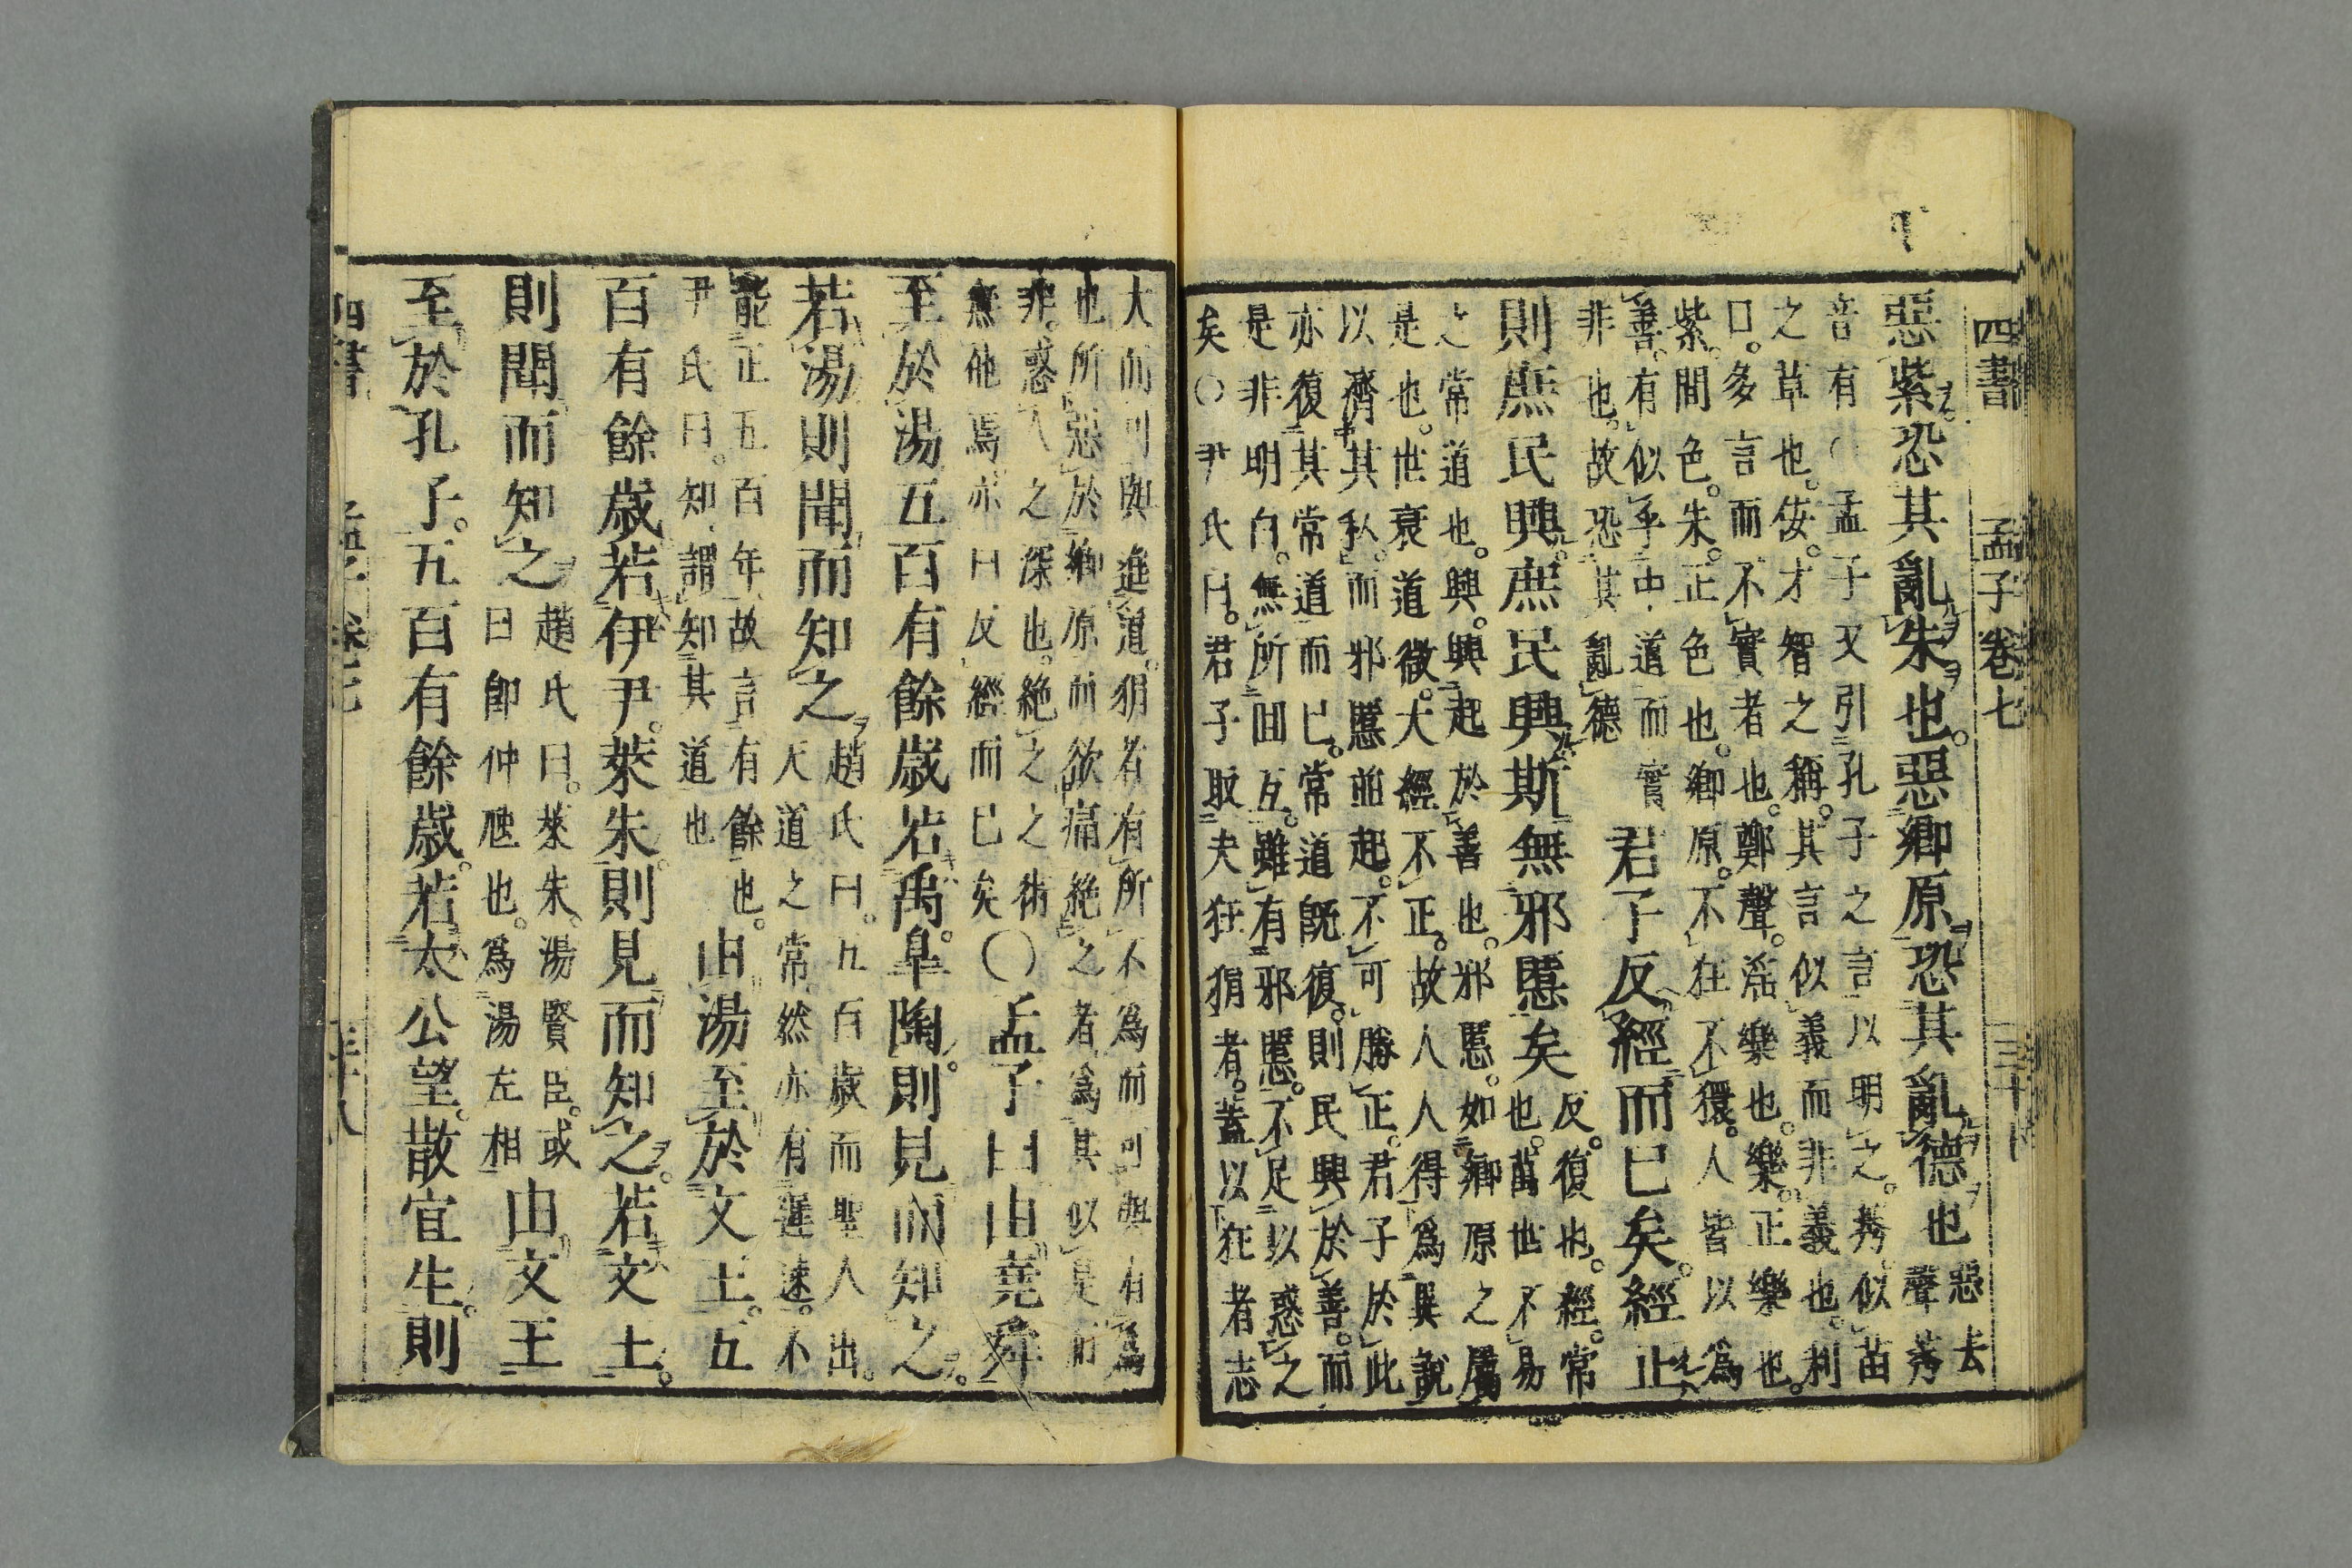 四書 孟子卷七
惡紫恐其亂朱也惡鄉原恐其亂德也惡去
聲莠
音有○孟子又引孔子之言以明之莠似苗
之草也佞才智之稱其言似義而非義也利
口多言而不實者也鄭聲淫樂也樂正樂也
紫間色朱正色也鄉原不狂不獧人皆以爲
善有似乎中道而實
非也故恐其亂德
君子反經而已矣經正
則庶民興庶民興斯無邪慝矣反復也經常
也萬世不易
之常道也興興起於善也邪慝如鄉原之屬
是也世衰道微大經不正故人人得爲異說
以濟其私而邪慝並起不可勝正君子於此
亦復其常道而已常道旣復則民興於善而
是非明白無所回互雖有邪慝不足以惑之
矣○尹氏曰君子取夫狂狷者蓋以狂者志
大而可與進道狷者有所不爲而可與有爲
也所惡於鄉原而欲痛絶之者爲其似是而
非惑人之深也絶之之術
無他焉亦曰反經而已矣
○孟子曰由堯舜
至於湯五百有餘歲若禹皐陶則見而知之
若湯則聞而知之趙氏曰五百歲而聖人出
天道之常然亦有遲速不
能正五百年故言有餘也
尹氏曰知謂知其道也
由湯至於文王五
百有餘歲若伊尹萊朱則見而知之若文王
則聞而知之趙氏曰萊朱湯賢臣或
曰卽仲虺也爲湯左相
由文王
至於孔子五百有餘歲若太公望散宜生則